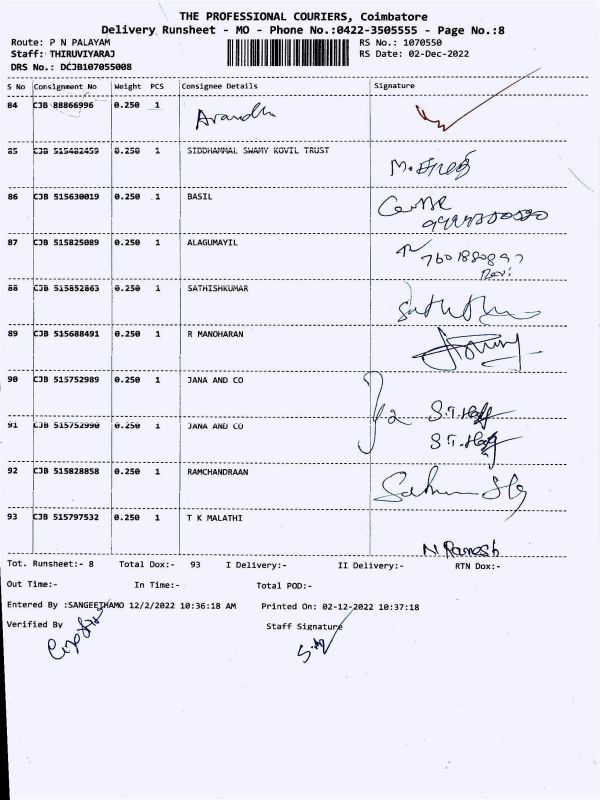 THE PROFESSIONAL COURIERS, Coimbatore
Delivery Runsheet - MO - Phone No.:0422-3505555 - Page No.:8
Route: P N PALAYAM RS No.: 1070550
Staff: THIRUVIYARAJ RS Date: 02-Dec-2022
DRS No.: DCJB107055008
S No Consignment No Weight PCS Consignee Details Signature
84 CJB 88866996 0.250 1
85 CJB 515482459 0.250 1 SIDDHAMMAL SWAMY KOVIL TRUST
86 CJB 515630019 0.250 1 BASIL
87 CJB 515825089 0.250 1 ALAGUMAYIL
7601880897
Ravi
88 CJB 515852863 0.250 1 SATHISHKUMAR
89 CJB 515688491 0.250 1 R MANOHARAN
90 CJB 515752989 0.250 1 JANA AND CO
91 CJB 515752990 0.250 1 JANA AND CO
92 CJB 515828858 0.250 1 RAMCHANDRAAN
93 CJB 515797532 0.250 1 T K MALATHI
N Ramesh
Tot. Runsheet:- 8 Total Dox:- 93 I Delivery:- II Delivery:- RTN Dox:-
Out Time:- In Time:- Total POD:-
Entered By :SANGEETHAMO 12/2/2022 10:36:18 AM Printed On: 02-12-2022 10:37:18
Verified By Staff Signature